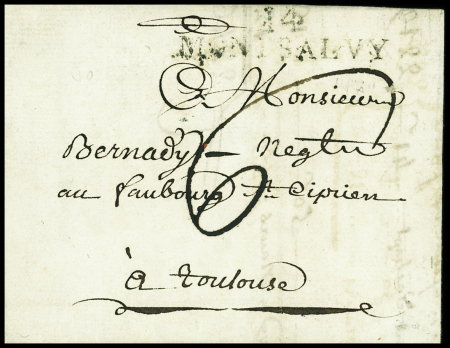 14
MONTSALVY
A Monsieur
Bernady Negtn
au faubourg St. Ciprien
à Toulouse
6